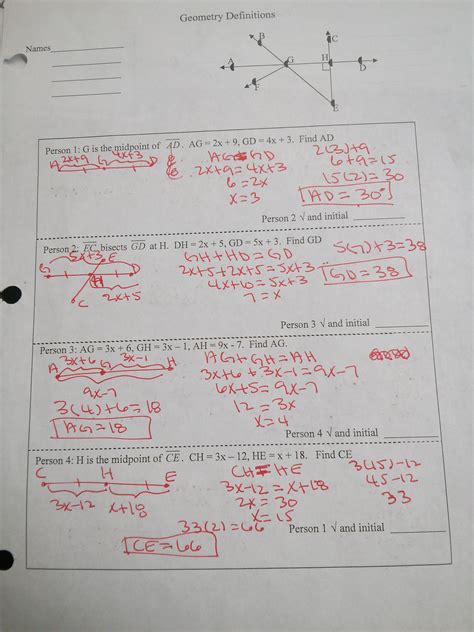 Geometry Definitions
Names
B
C
A
G
H
D
F
E
Person 1: G is the midpoint of AD. AG = 2x + 9, GD = 4x + 3. Find AD
2x+9 4x+3
A G D
AG = GD
2x+9 = 4x+3
6 = 2x
x = 3
2(3)+9
6+9=15
15(2)=30
AD = 30
Person 2 √ and initial
Person 2: EC bisects GD at H. DH = 2x + 5, GD = 5x + 3. Find GD
5x+3 E
G H D
2x+5
C
GH+HD=GD
2x+5+2x+5=5x+3
4x+10=5x+3
7=x
5(7)+3=38
GD=38
Person 3 √ and initial
Person 3: AG = 3x + 6, GH = 3x – 1, AH = 9x - 7. Find AG.
3x+6 3x-1
A G H
9x-7
3(4)+6=18
AG=18
AG+GH=AH
3x+6+3x-1=9x-7
6x+5=9x-7
12=3x
x=4
Person 4 √ and initial
Person 4: H is the midpoint of CE. CH = 3x – 12, HE = x + 18. Find CE
C H E
3x-12 x+18
CH=HE
3x-12=x+18
2x=30
x=15
3(15)-12
45-12
33
33(2)=66
CE=66
Person 1 √ and initial